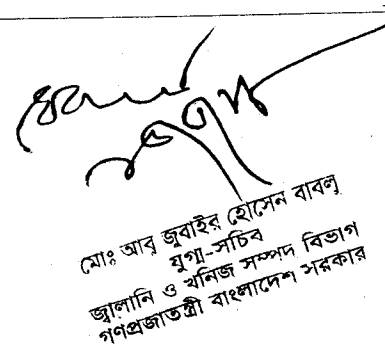 মোঃ আবু জুবাইর হোসেন বাবলু
যুগ্ম-সচিব
জ্বালানি ও খনিজ সম্পদ বিভাগ
গণপ্রজাতন্ত্রী বাংলাদেশ সরকার